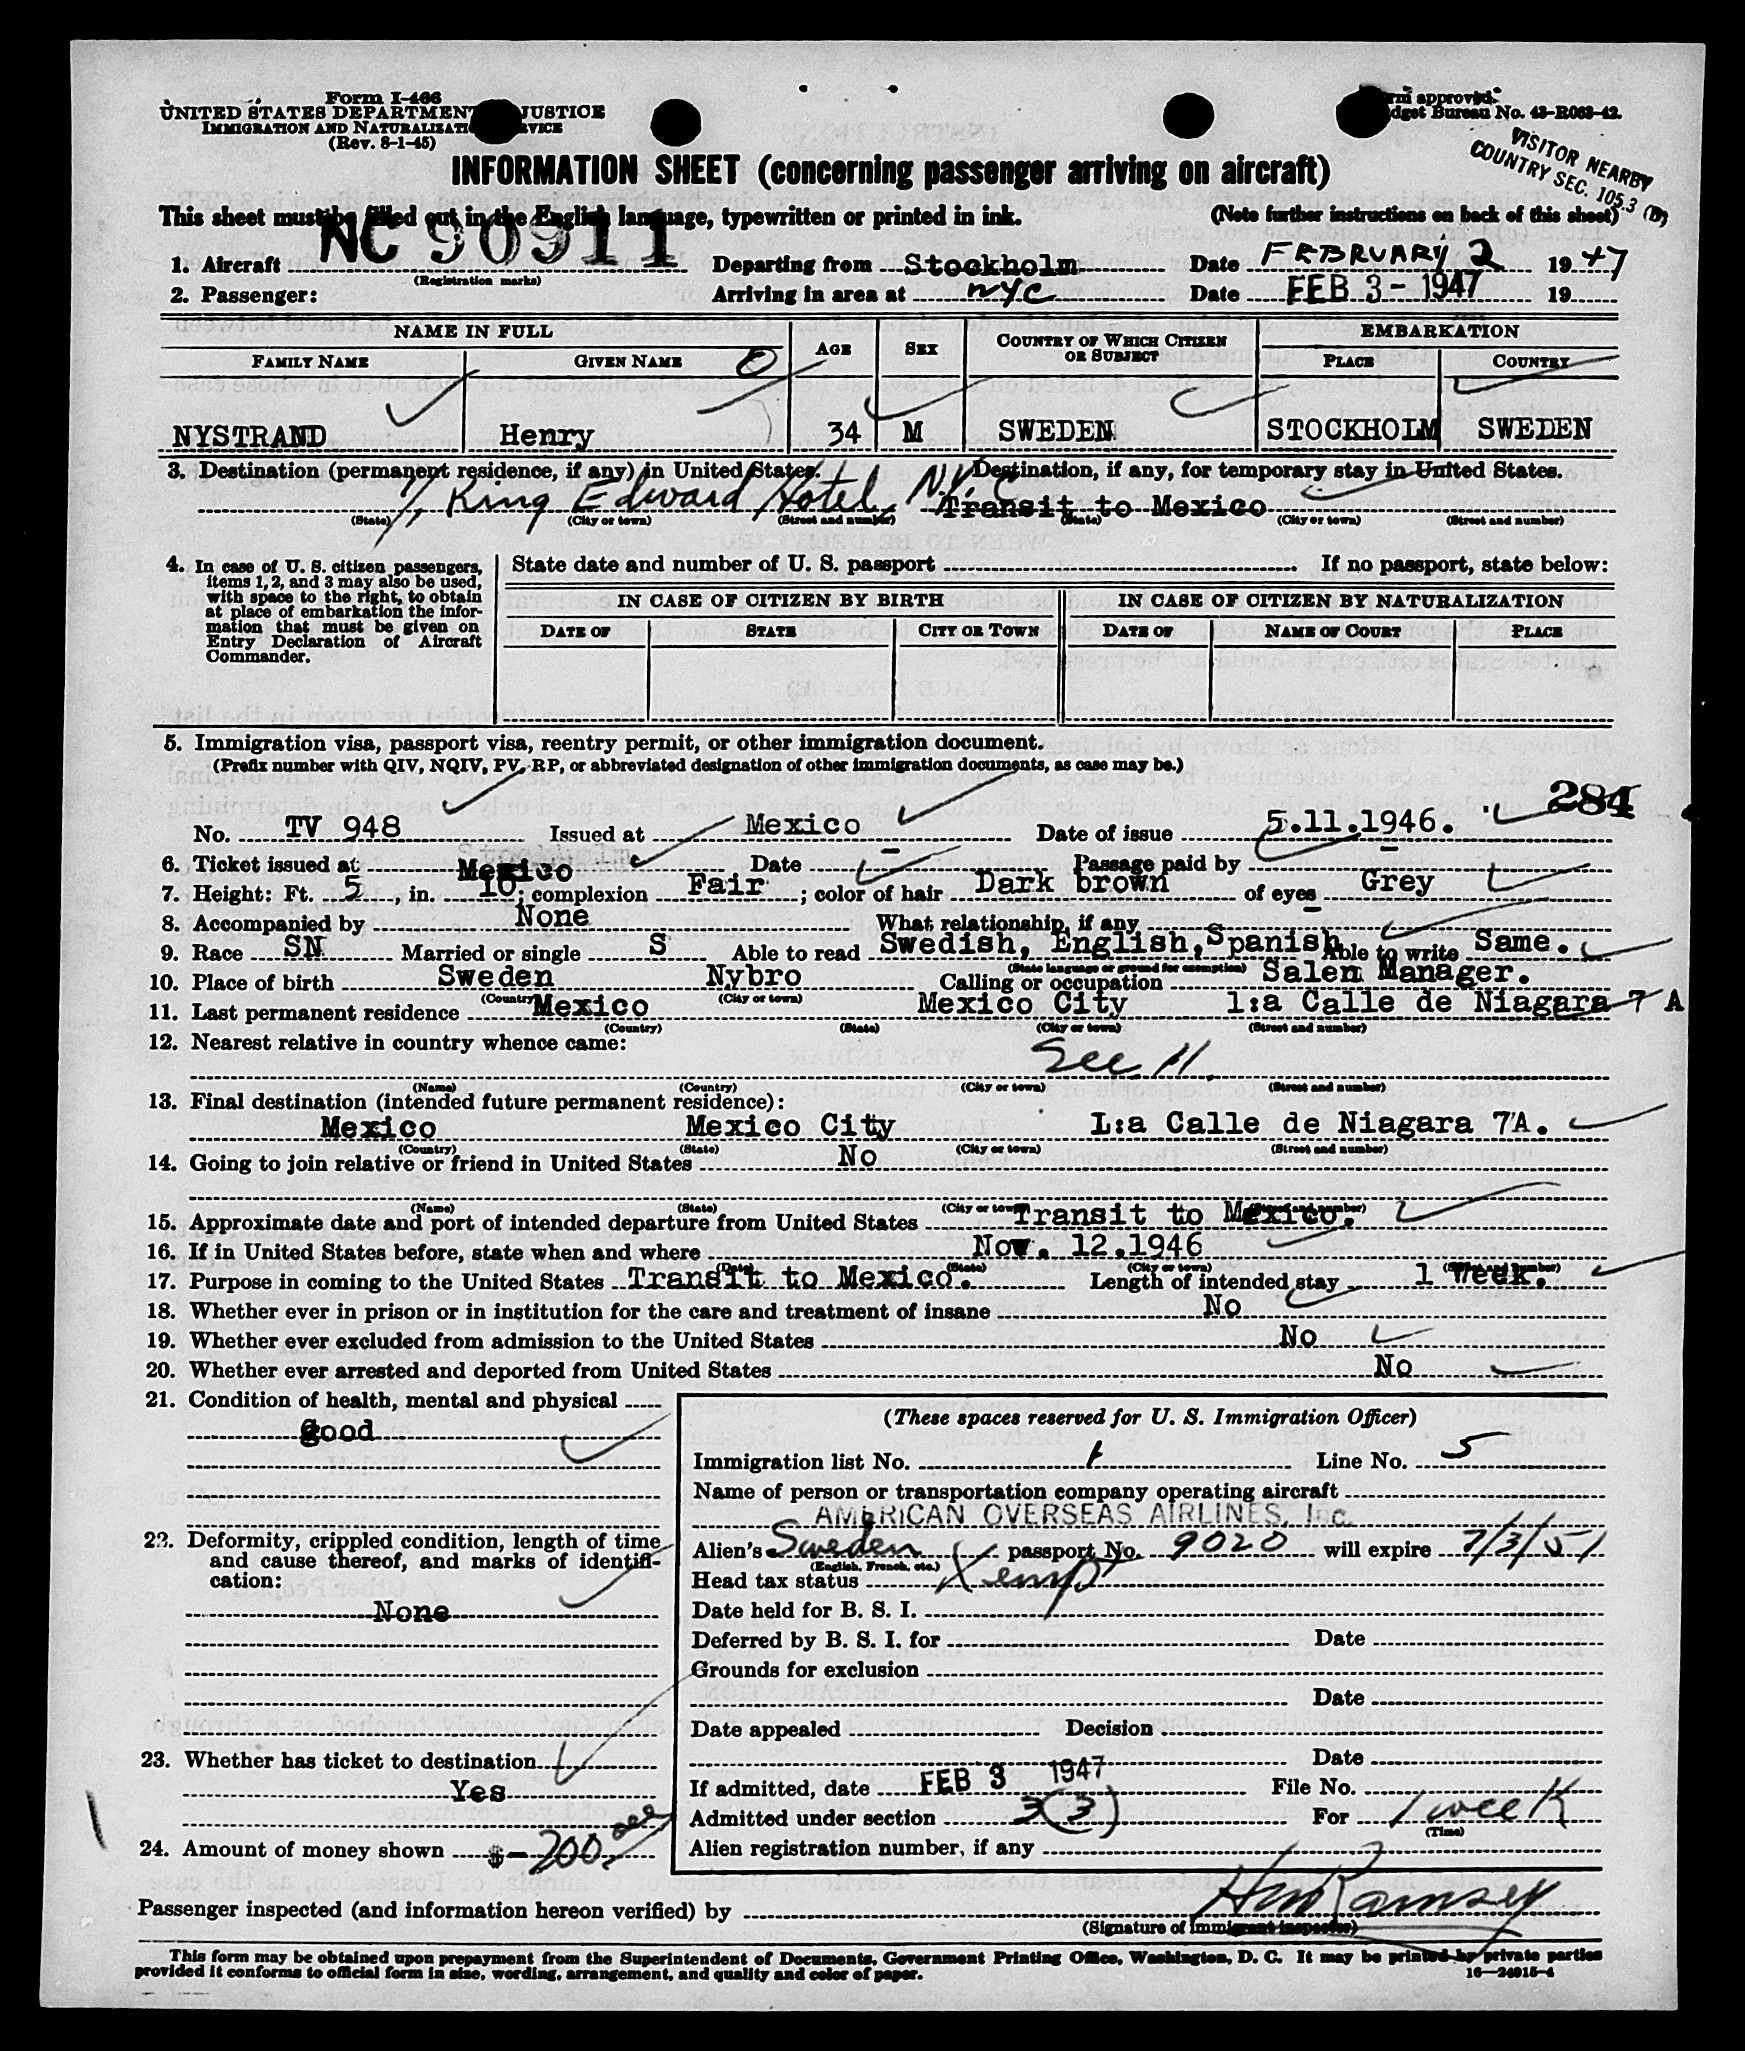 Form I-466
UNITED STATES DEPARTMENT JUSTICE
IMMIGRATION AND NATURALIZATI RVICE
(Rev. 8-1-45)
rm approved.
dget Bureau No. 43-R063-42.
VISITOR NEARBY
COUNTRY SEC. 105.3 (B)
INFORMATION SHEET (concerning passenger arriving on aircraft)
This sheet must be filled out in the English language, typewritten or printed in ink. (Note further instructions on back of this sheet)
1. Aircraft NC 90911 Departing from Stockholm Date FEBRUARY 2 1947
(Registration marks)
2. Passenger: Arriving in area at NYC Date FEB 3 - 1947 19
NAME IN FULL AGE SEX COUNTRY OF WHICH CITIZEN OR SUBJECT EMBARKATION
FAMILY NAME GIVEN NAME PLACE COUNTRY
NYSTRAND Henry 34 M SWEDEN STOCKHOLM SWEDEN
3. Destination (permanent residence, if any) in United States. Destination, if any, for temporary stay in United States.
King Edward Hotel, N.Y.C Transit to Mexico
(State) (City or town) (Street and number) (State) (City or town) (Street and number)
4. In case of U. S. citizen passengers, items 1, 2, and 3 may also be used, with space to the right, to obtain at place of embarkation the information that must be given on Entry Declaration of Aircraft Commander.
State date and number of U. S. passport If no passport, state below:
IN CASE OF CITIZEN BY BIRTH IN CASE OF CITIZEN BY NATURALIZATION
DATE OF STATE CITY OR TOWN DATE OF NAME OF COURT PLACE
5. Immigration visa, passport visa, reentry permit, or other immigration document.
(Prefix number with QIV, NQIV, PV, RP, or abbreviated designation of other immigration documents, as case may be.)
284
No. TV 948 Issued at Mexico Date of issue 5.11.1946.
6. Ticket issued at Mexico Date - Passage paid by -
7. Height: Ft. 5, in. 10; complexion Fair; color of hair Dark brown of eyes Grey
8. Accompanied by None What relationship, if any -
9. Race SN Married or single S Able to read Swedish, English, Spanish Able to write Same.
(State language or ground for exemption)
10. Place of birth Sweden Nybro Calling or occupation Salen Manager.
(Country) (City or town)
11. Last permanent residence Mexico Mexico City 1:a Calle de Niagara 7 A
(Country) (State) (City or town) (Street and number)
12. Nearest relative in country whence came:
See 11.
(Name) (Country) (City or town) (Street and number)
13. Final destination (intended future permanent residence):
Mexico Mexico City L:a Calle de Niagara 7A.
(Country) (State) (City or town) (Street and number)
14. Going to join relative or friend in United States No
(Name) (State) (City or town) (Street and number)
15. Approximate date and port of intended departure from United States Transit to Mexico.
16. If in United States before, state when and where Nov. 12.1946
(Date) (State) (City or town) (Street and number)
17. Purpose in coming to the United States Transit to Mexico. Length of intended stay 1 Week.
18. Whether ever in prison or in institution for the care and treatment of insane No
19. Whether ever excluded from admission to the United States No
20. Whether ever arrested and deported from United States No
21. Condition of health, mental and physical
Good
22. Deformity, crippled condition, length of time and cause thereof, and marks of identification:
None
23. Whether has ticket to destination
Yes
24. Amount of money shown $-200.
(These spaces reserved for U. S. Immigration Officer)
Immigration list No. 1 Line No. 5
Name of person or transportation company operating aircraft
AMERICAN OVERSEAS AIRLINES, Inc.
Alien's Sweden passport No. 9020 will expire 7/3/51
(English, French, etc.)
Head tax status Xempt
Date held for B. S. I.
Deferred by B. S. I. for Date
Grounds for exclusion
Date
Date appealed Decision
Date
If admitted, date FEB 3 1947 File No.
Admitted under section 3(3) For 1 week
(Time)
Alien registration number, if any
Passenger inspected (and information hereon verified) by Ramsey
(Signature of immigrant inspector)
This form may be obtained upon prepayment from the Superintendent of Documents, Government Printing Office, Washington, D. C. It may be printed by private parties
provided it conforms to official form in size, wording, arrangement, and quality and color of paper.
16—24915-4